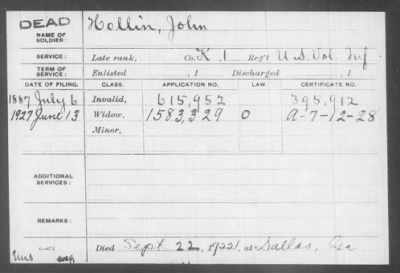 DEAD
NAME OF SOLDIER: Hollin, John
SERVICE: Late rank, Co. K, 1 Reg't U.S. Vol. Inf
TERM OF SERVICE: Enlisted , 1 Discharged , 1
DATE OF FILING. CLASS. APPLICATION NO. LAW CERTIFICATE NO.
1887 July 6 Invalid, 615,952 395,912
1927 June 13 Widow, 1583,329 O A-7-12-28
Minor,
ADDITIONAL SERVICES:
REMARKS:
Died Sept. 22, 1922, at Dallas, Ga